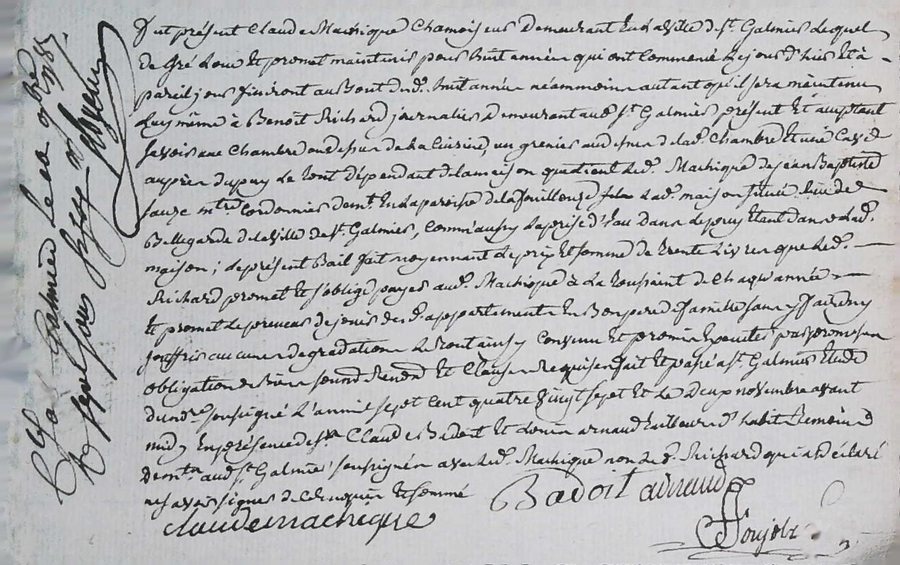 Fut présent Claude Machique Chamoiseur demeurant en la ville de St. Galmier lequel
de gré loue et promet maintenir pour huit années qui ont commencé le jour d'hier et à
pareil jour finiront au bout desd. huit année néammoins autant qu'il sera maintenu
luy même à Benoit Richard journalier demeurant aud. St. Galmier présent et acceptant
savoir une Chambre au dessus de la Cuisine, un grenier au dessus de lad. Chambre et une Cave
au près du puy le tout dépendant de la maison que tient led. Machique de jean Baptiste
fauze mtre. Cordonnier demt. en la paroisse de la fouillouse lad. maison située rue de
Bellegarde de la ville de St. Galmier, comm'aussy la prise d'eau dans le puy étant dans lad.
maison; le présent Bail fait moyennant le prix et somme de trente Livres que led.
Richard promet et s'oblige payer aud. Machique à La toussaint de Chaqu'année
et promet le preneur de jouir desd. appartements en Bon pere de famille sans y faire ny
souffrir aucune degradation le tout ainsy convenu et promis exécuter par promesses
obligation de Biens soumd. Renond. et Clauses Requises fait et passé à St. Galmier Etude
du nore. soussigné L'an mil sept cent quatre vingt sept et le deux novembre avant
midy en présence de sr. Claude Badoit et arnaud tailleur d'habit témoins
demts. aud. St. Galmier soussignés avec led. Machique non led. Richard qui a déclaré
ne savoir signer de ce enquis et sommé
claude machique
Badoit arnaud
Ponjolz
Cllé a St. Galmier le 9bre 1787